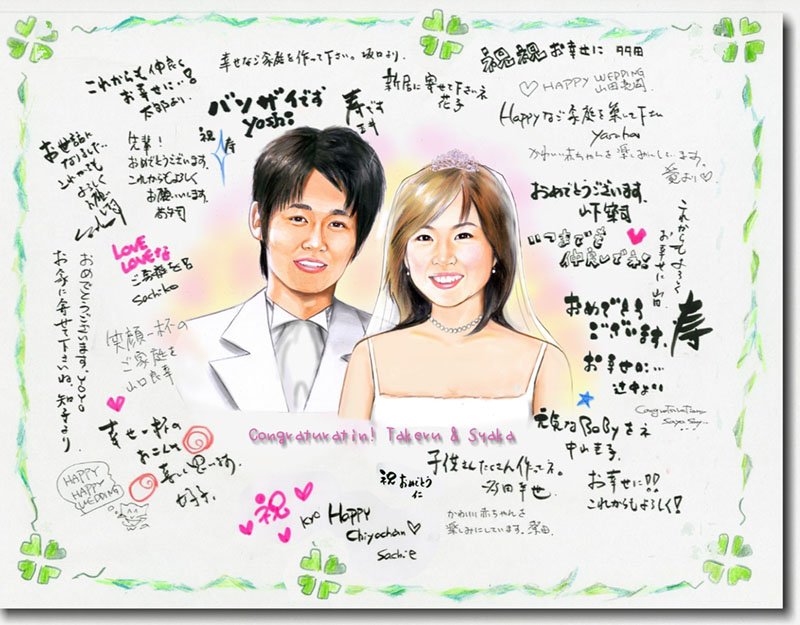 これからも仲良く
お幸せに…!
太郎より
幸せなご家庭を作って下さい。坂口より。
バンザイです
yoshi
寿です
新居に寄せて下さいネ
花子
祝祝お幸せに
HAPPY WEDDING
Happyなご家庭を築いて下さい
かわいい赤ちゃんを楽しみにしています。
お世話に
なりました…
これからも
よろしく
お願い
祝 寿
先輩!
おめでとうございます。
これからもよろしく
お願いします。
おめでとうございます。
山下
いつまでも
仲良しでネ
これからもよろしく
お幸せに 山田
LOVE
LOVEな
ご家庭を
Sachiko
おめでとうございます。YOYO
お家に寄せて下さいね。知子より
笑顔一杯の
ご家庭を
山口
おめでとう
ございます。
お幸せに…
辻中より
寿
Congraturatin! Takeru & Syaka
幸せ一杯の
おこしを
HAPPY
HAPPY
WEDDING
祝
祝 おめでとう
仁
Kyo Happy
Chiyochan
Sachie
子供さんたくさん作ってネ。
かわいい赤ちゃんを
楽しみにしています。
元気なBabyをネ
中山
Congraturation
お幸せに!!
これからもよろしく!